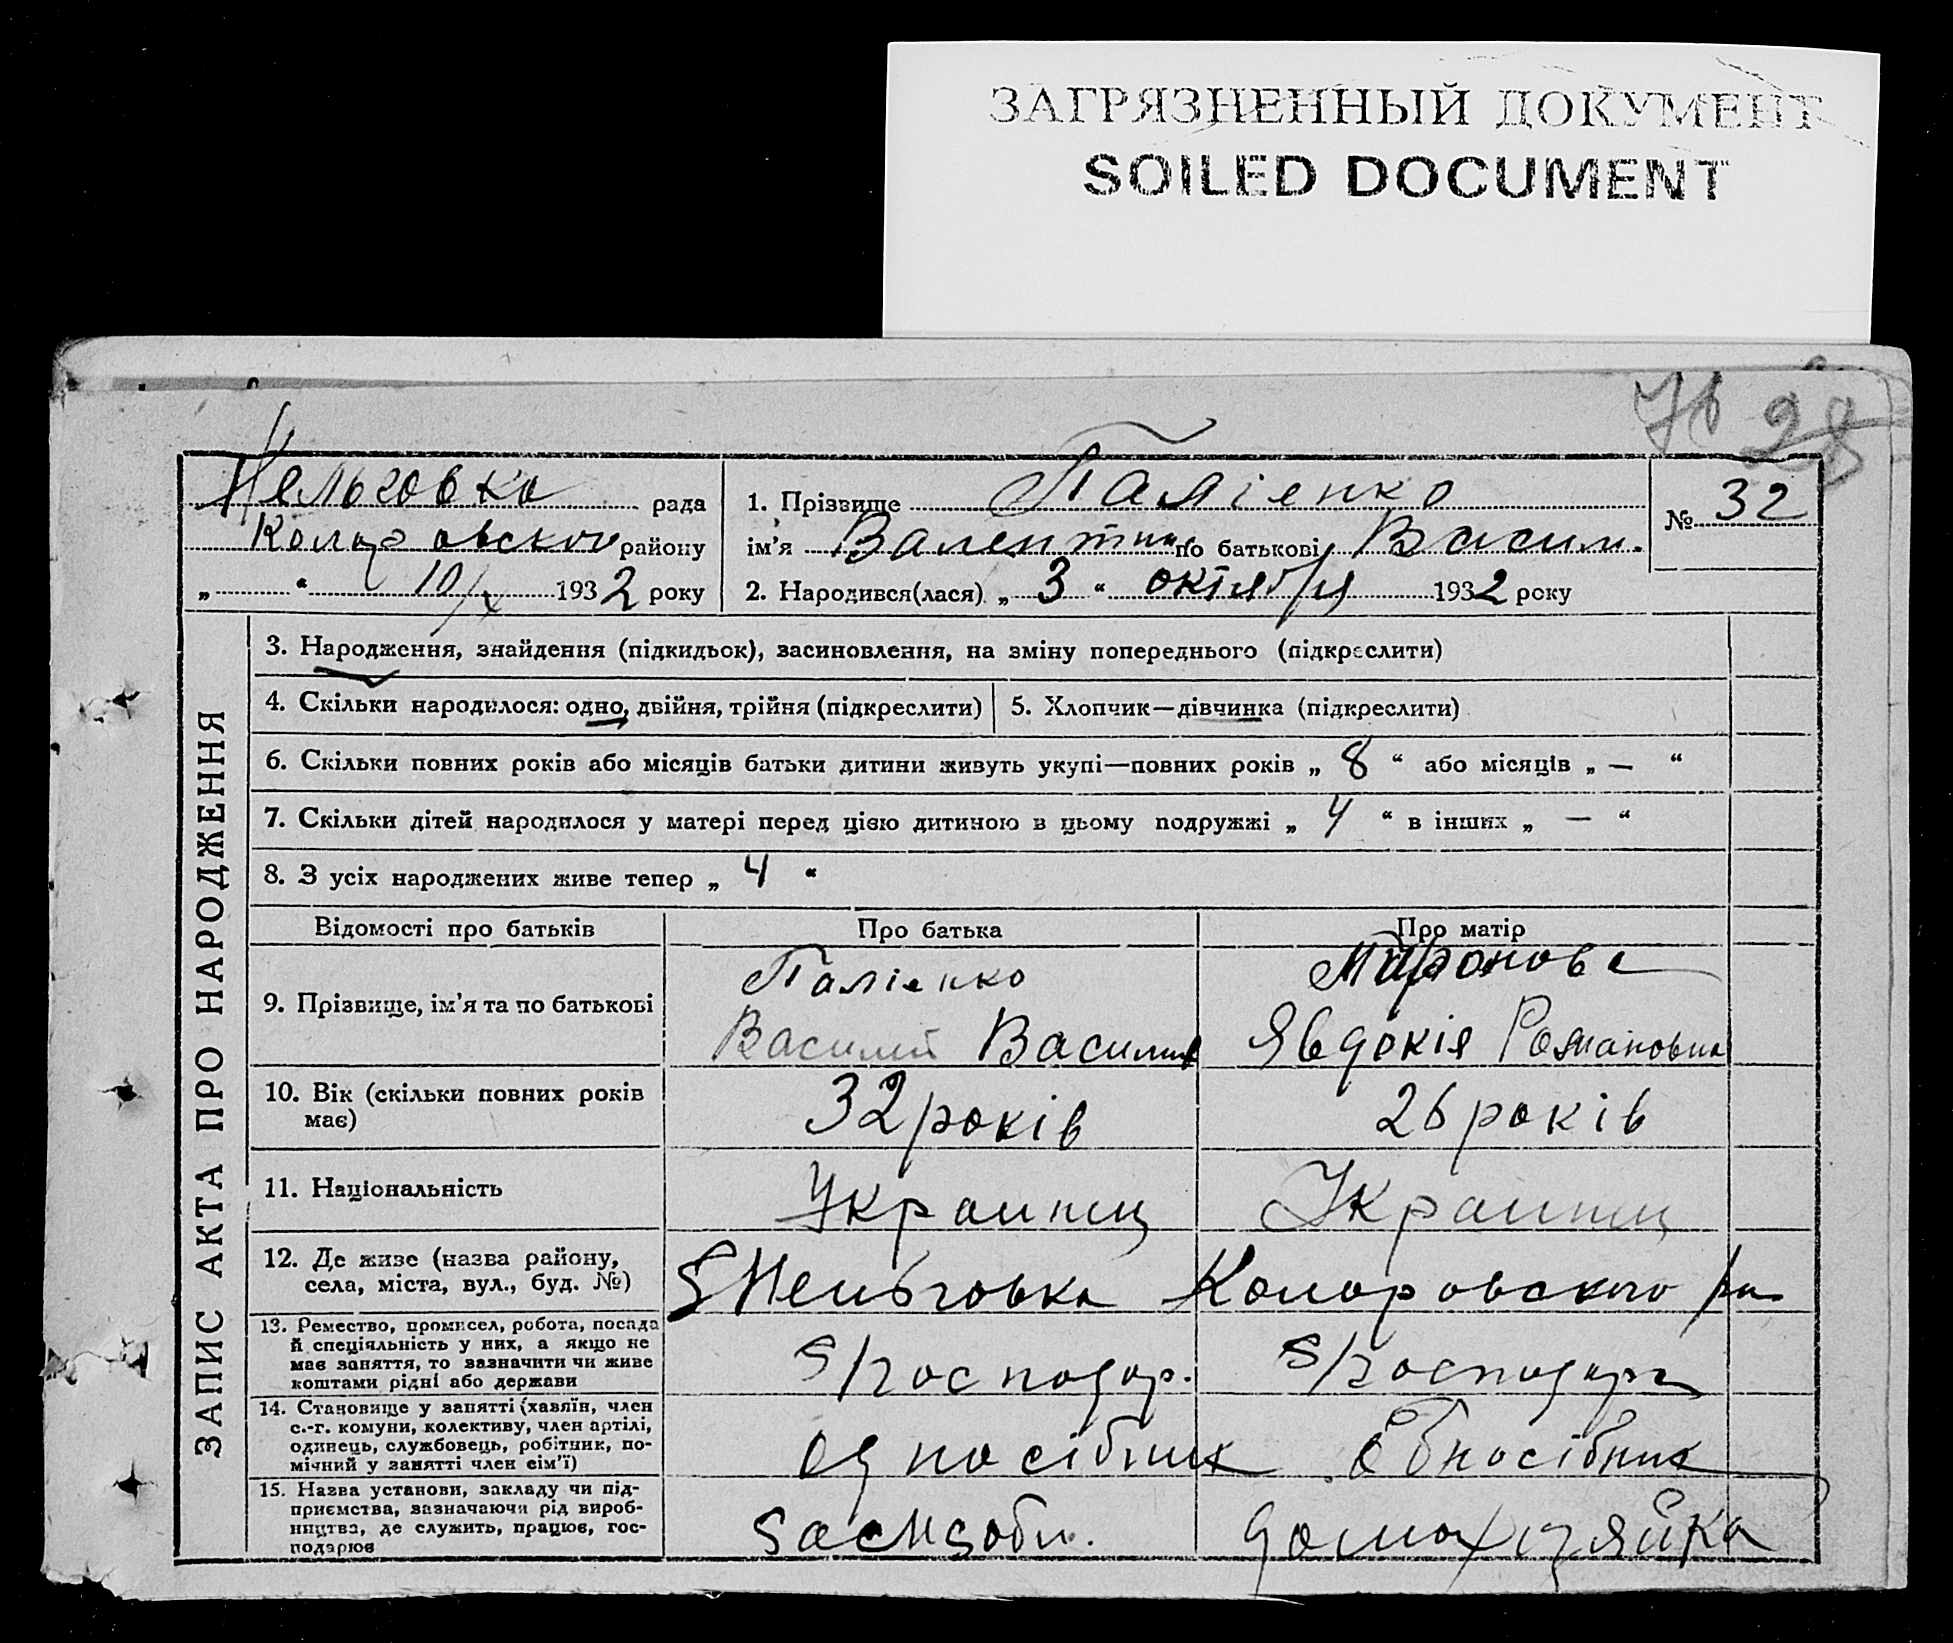 ЗАГРЯЗНЕННЫЙ ДОКУМЕНТ
SOILED DOCUMENT
28
Нельговка рада
Коларовского району
„ “ 10/X 1932 року
1. Прізвище Паліенко
ім’я Валентина по батькові Васил.
2. Народився(лася) „ 3 “ октября 1932 року
№ 32
ЗАПИС АКТА ПРО НАРОДЖЕННЯ
3. Народження, знайдення (підкидьок), засиновлення, на зміну попереднього (підкреслити)
4. Скільки народилося: одно, двійня, трійня (підкреслити)
5. Хлопчик—дівчинка (підкреслити)
6. Скільки повних років або місяців батьки дитини живуть укупі—повних років „ 8 “ або місяців „ — “
7. Скільки дітей народилося у матері перед цією дитиною в цьому подружжі „ 4 “ в інших „ — “
8. З усіх народжених живе тепер „ 4 “
Відомості про батьків
Про батька
Про матір
9. Прізвище, ім’я та по батькові
Паліенко
Василий Василив
Миронова
Явдокія Романовна
10. Вік (скільки повних років
має)
32 років
26 років
11. Національність
Украинец
Украинец
12. Де живе (назва району,
села, міста, вул., буд. №)
Нельговка Коларовского ра
13. Ремество, промисел, робота, посада
й спеціяльність у них, а якщо не
має заняття, то зазначити чи живе
коштами рідні або держави
S/господар.
S/господар
14. Становище у занятті (хазяїн, член
с.-г. комуни, колективу, член артілі,
одинець, службовець, робітник, по-
мічний у занятті член сім’ї)
односібник
односібник
15. Назва установи, закладу чи під-
приємства, зазначаючи рід вироб-
ництва, де служить, працює, гос-
подарює
домахозяйка